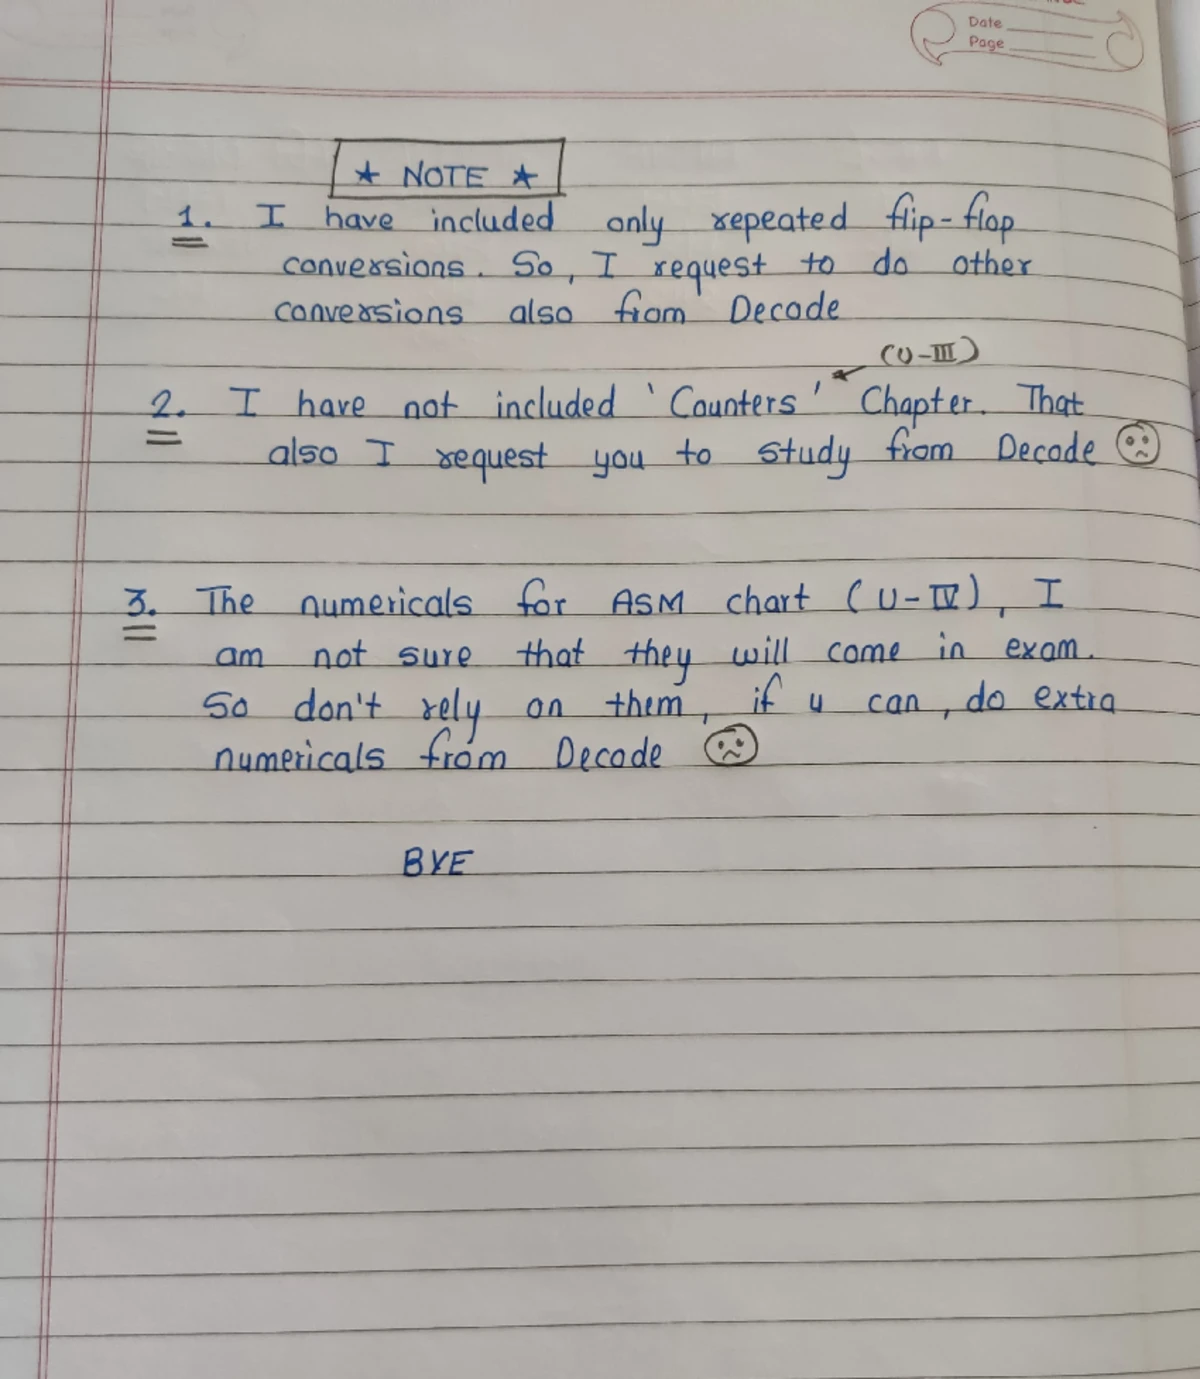 Date
Page
★ NOTE ★
1. I have included only repeated flip-flop
conversions. So, I request to do other
conversions also from Decode
(U-III)
2. I have not included 'Counters' Chapter. That
also I request you to study from Decode
3. The numericals for ASM chart (U-IV), I
am not sure that they will come in exam.
So don't rely on them, if u can, do extra
numericals from Decode
BYE